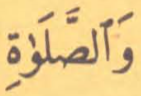 وَٱلصَّلَوٰةِ